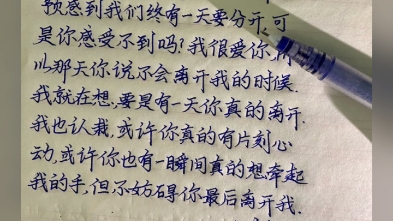 预感到我们终有一天要分开,可
是你感受不到吗?我很爱你,所
以那天你说不会离开我的时候.
我就在想,要是有一天你真的离开.
我也认栽,或许你真的有片刻心
动,或许你也有一瞬间真的想牵起
我的手,但不妨碍你最后离开我.